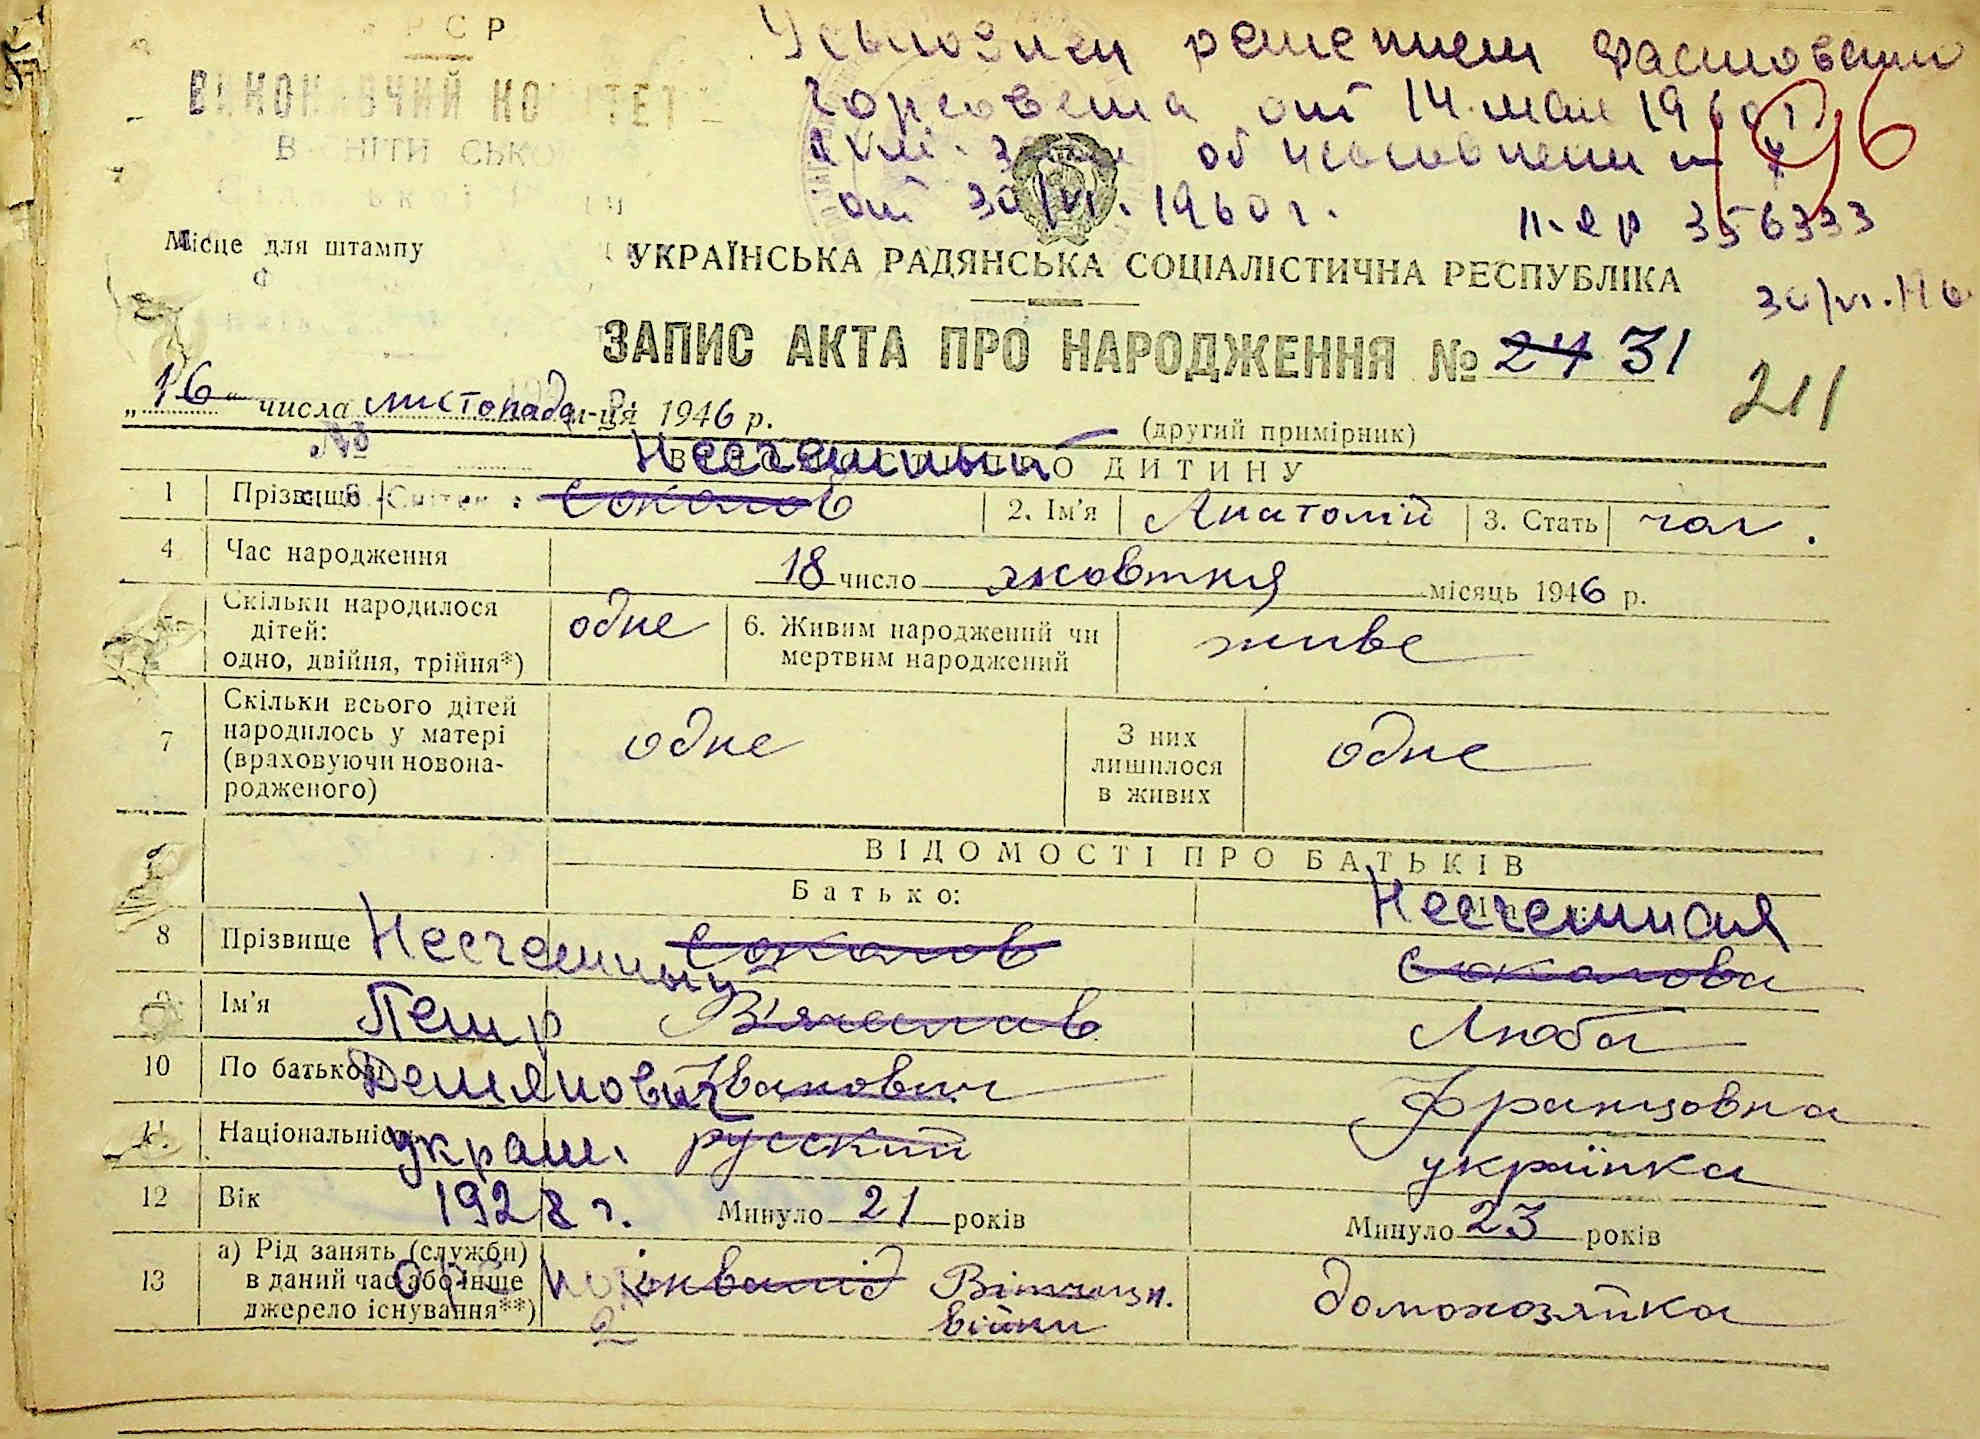 РСР
ВИКОНАВЧИЙ КОМІТЕТ
Усыновлен решением Фастовского
горсовета от 14 мая 1960 г.
об усыновлении
от 30/VI. 1960 г.
356333
30/VI.
96
Місце для штампу
УКРАЇНСЬКА РАДЯНСЬКА СОЦІАЛІСТИЧНА РЕСПУБЛІКА
ЗАПИС АКТА ПРО НАРОДЖЕННЯ № 24 31
211
„16“ числа листопада м-ця 1946 р.
(другий примірник)
№
Несчетный
ПРО ДИТИНУ
1 Прізвище Соколов 2. Ім'я Анатолій 3. Стать чол.
4 Час народження 18 число жовтня місяць 1946 р.
5 Скільки народилося дітей: одно, двійня, трійня*) одне 6. Живим народжений чи мертвим народжений живе
7 Скільки всього дітей народилось у матері (враховуючи новонародженого) одне З них лишилося в живих одне
ВІДОМОСТІ ПРО БАТЬКІВ
Батько:
Несчетная
8 Прізвище Несчетный Соколов Соколова
9 Ім'я Петр В'ячеслав Люба
10 По батькові Демянович Іванович Францовна
11. Національність украин. русский українка
12 Вік 1928 г. Минуло 21 років Минуло 23 років
13 а) Рід занять (служби) в даний час або інше джерело існування**) інвалід Вітчизн. війни домохозяйка